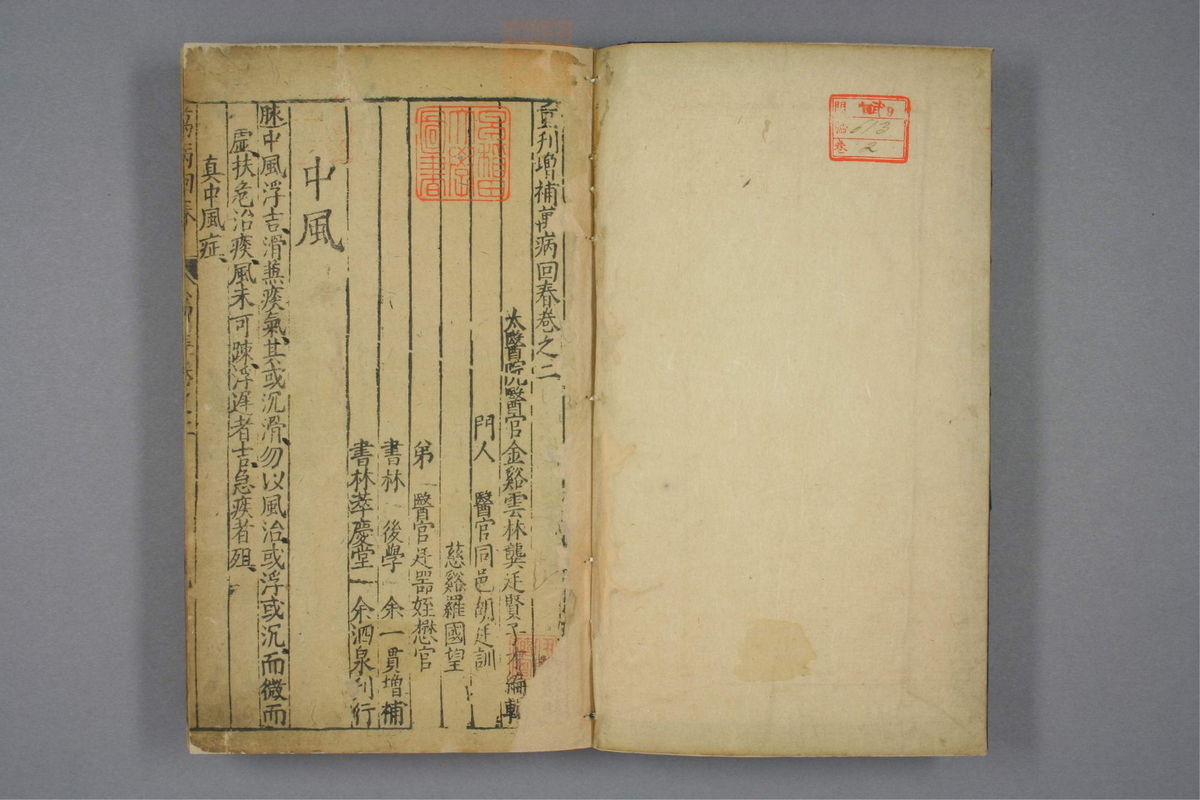 重刋增補萬病回春卷之二
太醫院醫官金谿雲林龔廷賢子才編輯
門人 醫官同邑胡廷訓
慈谿羅國望
弟 醫官廷器姪懋官
書林 後學 余一貫增補
書林萃慶堂 余泗泉刋行
中風
脉中風浮吉滑兼痰氣其或沉滑勿以風治或浮或沉而微而
虛扶危治痰風未可踈浮遲者吉急疾者殂
真中風症
萬病回春
門
卷 2